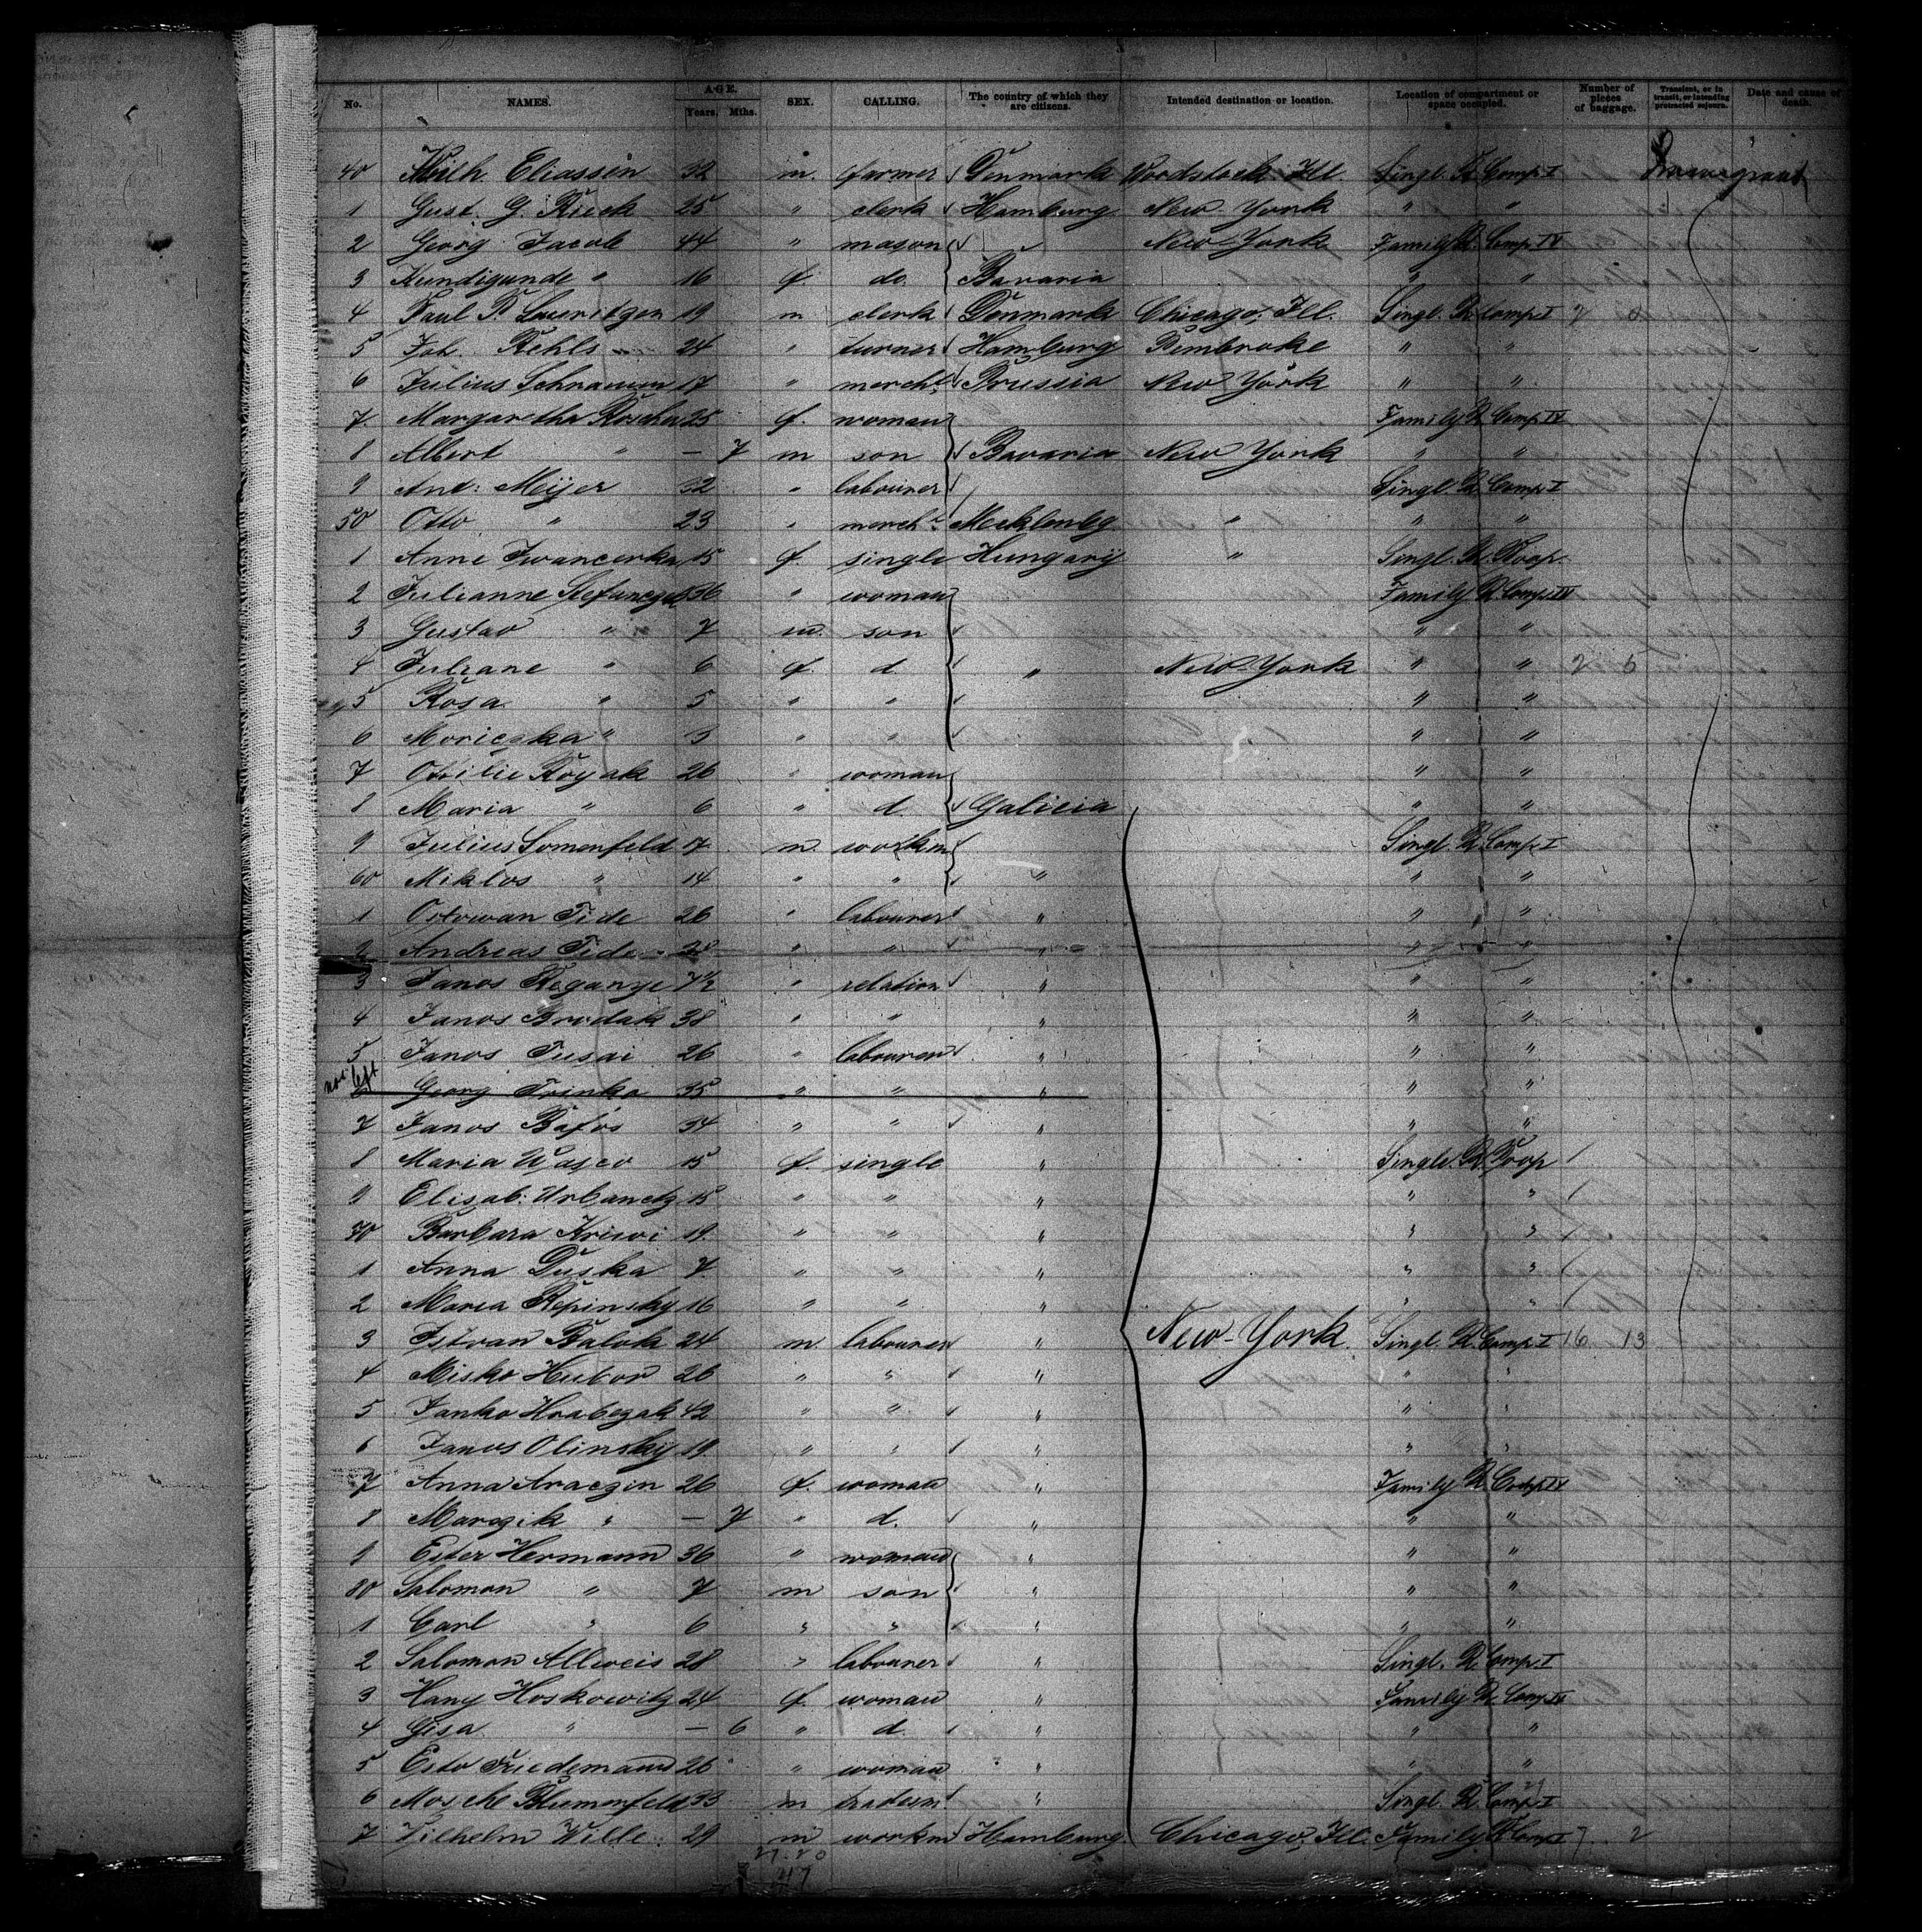 No. NAMES. AGE. Years. Mths. SEX. CALLING. The country of which they are citizens. Intended destination or location. Location of compartment or space occupied. Number of pieces of baggage. Transient, or in transit, or intending protracted sojourn. Date and cause of death.
40 Wilh. Eliassen 32 m. farmer Denmark Woodstock Ill. Singl. R. Comp. I
1 Gust. G. Rieck 25 " clerk Hamburg New York " "
2 Georg Jacob 44 " mason New York Family R. Comp. IV
3 Kundigunde " 16 f. do. Bavaria " "
4 Paul P. Lauritzen 19 m clerk Denmark Chicago, Ill. Singl. R. Comp. I
5 Joh. Rehls 24 " turner Hamburg Pembroke " "
6 Julius 17 " mercht. Prussia New York " "
7. Margaretha 25 f. woman Family R. Comp. IV
8 Albert " — 7 m son Bavaria New York " "
9 Ant: Meijer 32 " labourer Singl. R. Comp. I
50 Otto " 23 " mercht. Mecklenbg. " " "
1 Anne 15 f. single Hungary " Singl. R. Poop.
2 Julianne 36 " woman Family R. Comp. IV
3 Gustav " 7 m. son " "
4 Juliane " 6 f. d. " New York " " 2 5
5 Rosa " 5 " " " "
6 " 3 " " " "
7 Ottilie Royak 26 " woman " "
8 Maria " 6 " d. Galicia " "
9 Julius 7 m. workm Singl. R. Comp. I
60 Miklos " 14 " " " " "
1 Tide 26 " labourer " " "
2 Andreas Tide " " " " "
3 Janos " relation " " "
4 Janos Brodak 38 " " " " "
5 Janos Tusai 26 " labourer " " "
not left 6 Georg Trinka 35 " " " " "
7 Janos 34 " " " " "
8 Maria Wasco 15 f. single " Single. R. Poop 1
9 Elisab: 15 " " " " " 1
70 Barbara Kriwi 19. " " " " " 1
1 Anna Duska 7. " " " " " 1
2 Maria Repinsky 16 " " " " " 1
3 Istvan 24 m labourer " New-York. Singl. R. Comp. I 16 13
4 Misko 26 " " " " "
5 Janko 42 " " " " "
6 Janos Olinsky 19. " " " " "
7 Anna 26 f. woman " Family R. Comp. IV
8 " — 7 " d. " " "
9 Ester Hermann 36 " woman " " "
80 Salomon " 7 m son " " "
1 Carl " 6 " " " " "
2 Salomon Allweis 28 " labourer " Singl. R. Comp. I
3 Hany Hoskowitz 24 f. woman " Family R. Comp. IV
4 Gisa " — 6 " d. " " "
5 Friedemann 26 " woman " " "
6 Mosche Blumenfeld 33 m " Singl. R. Comp. I
7 Wilhelm Wille. 29 m workm Hamburg. Chicago, Ill. Family R. Comp. 2
27 - 20
47